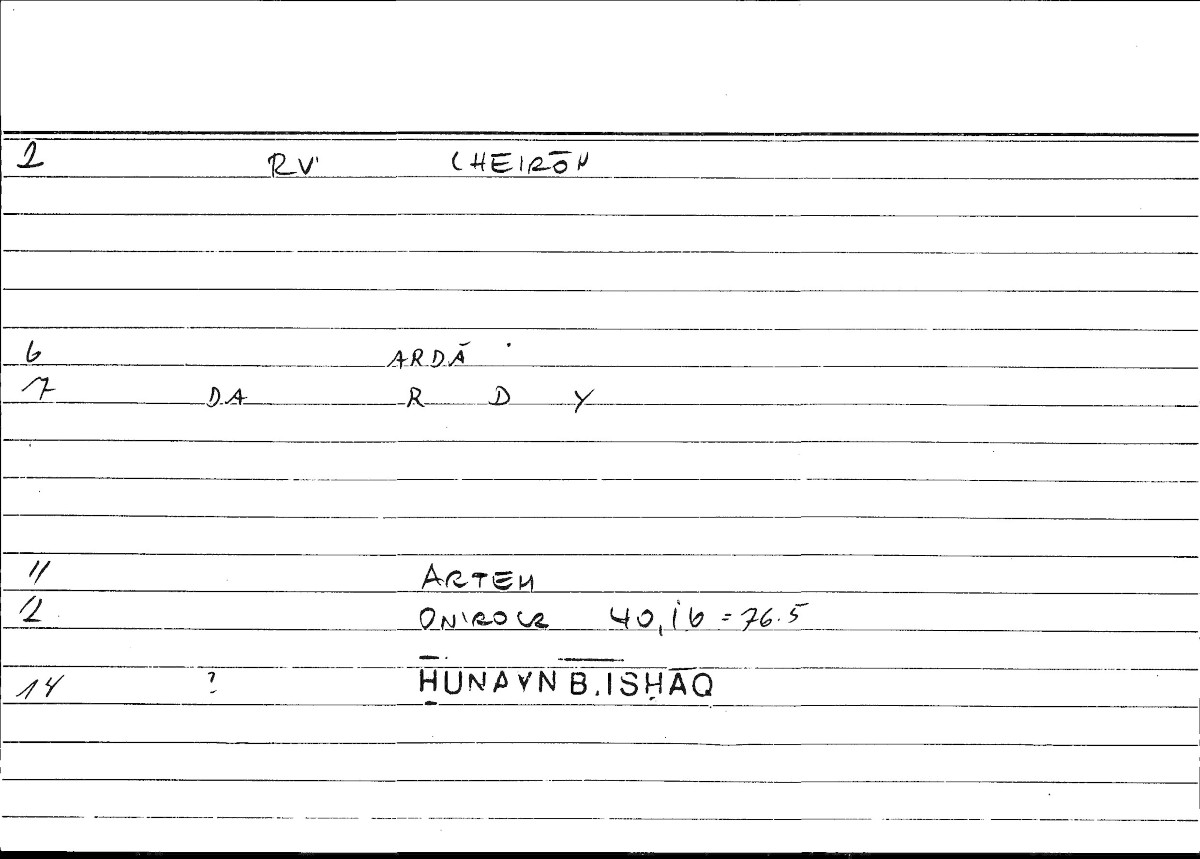 2 RV' CHEIRŌN
6 ARDĀ
7 DA R D Y
11 ARTEM
12 ONIROCR 40,16 = 76.5
14 ? ḤUNAYN B. ISḤĀQ